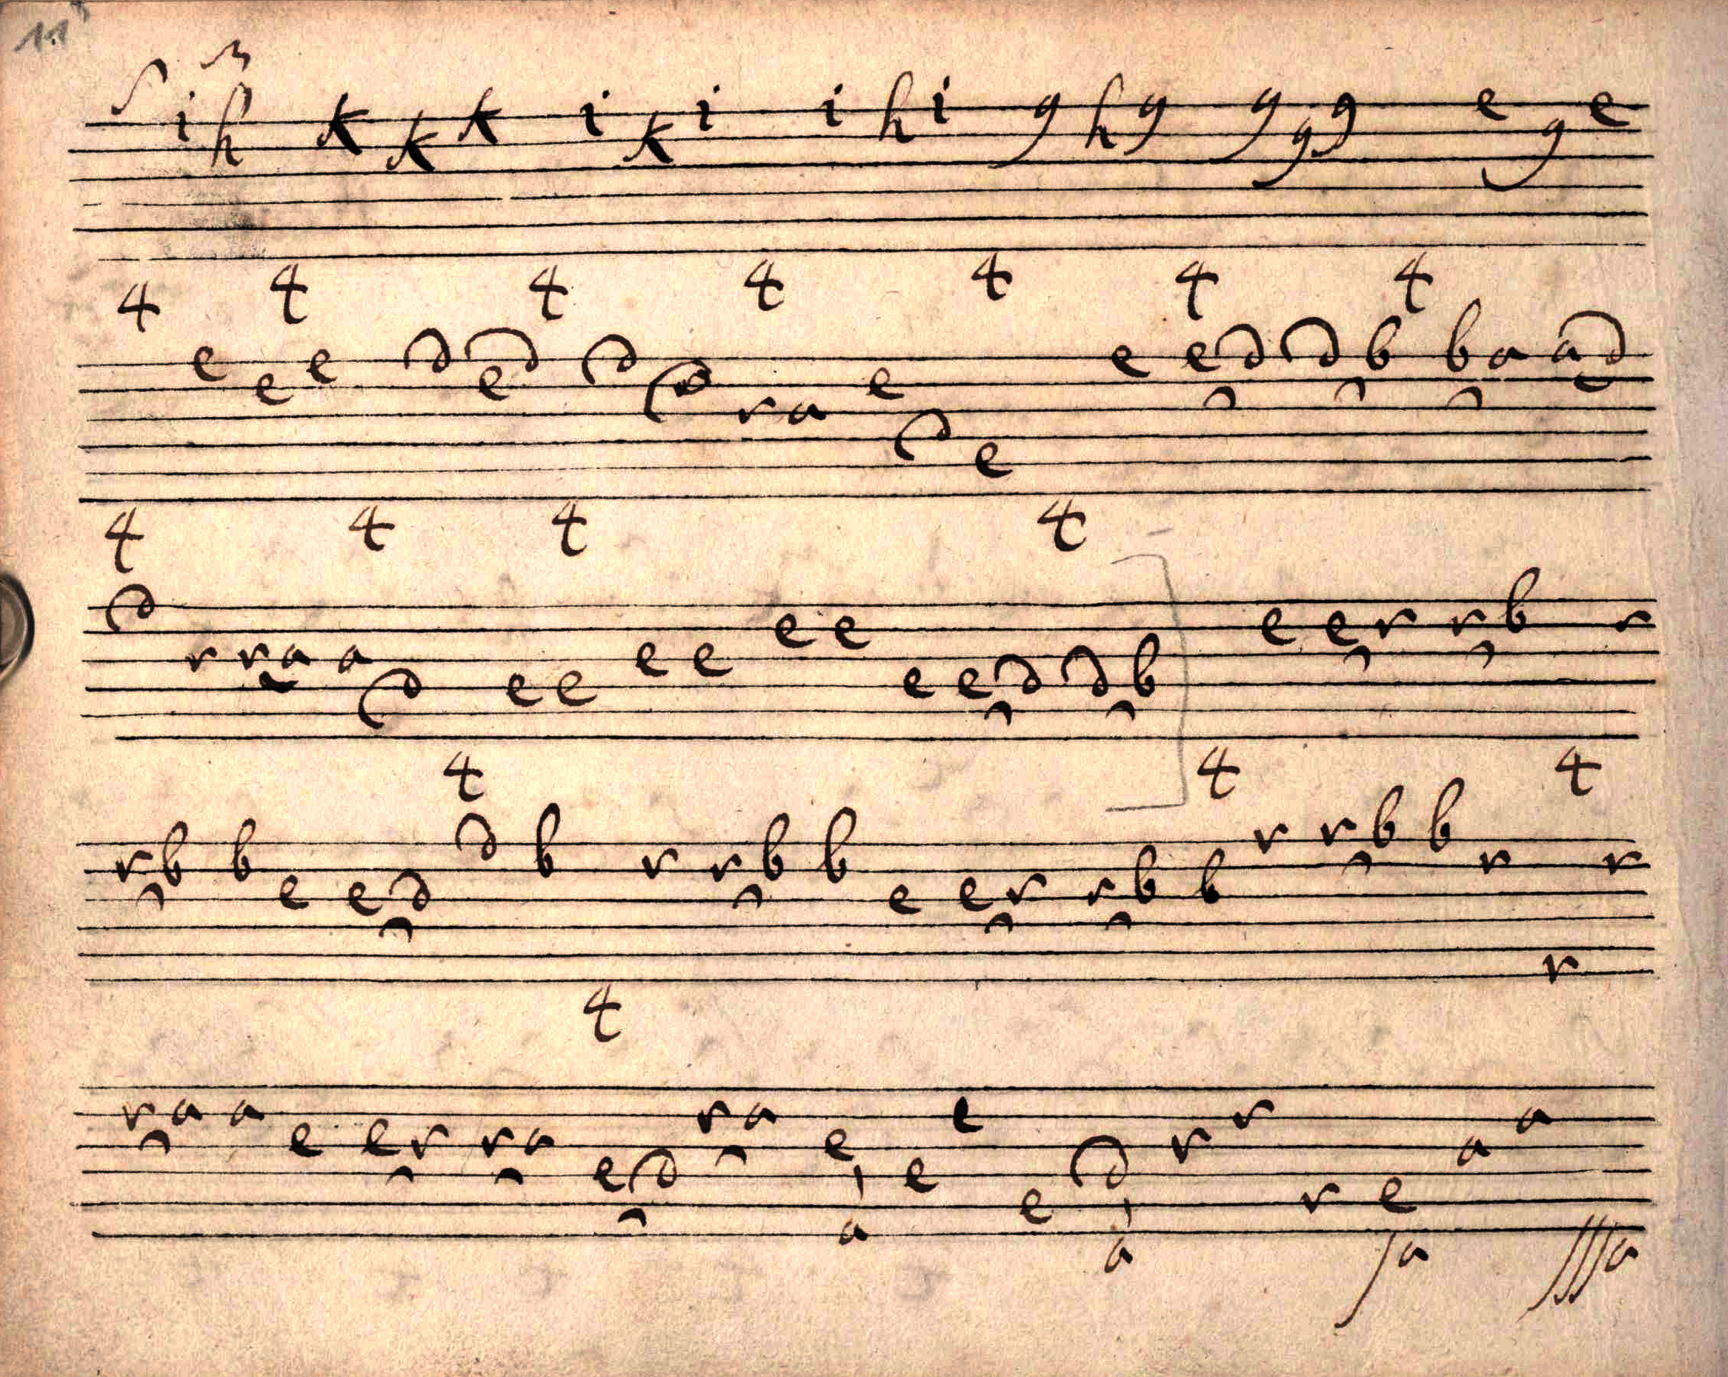 11
i h k k k i k i i h i g h g g g g e g e
4 4 4 4 4 4 4
e e e d e d d r a e d e e e d d b b a a d
4 4 4 4
d r r a a d e e e e e e e e d d b e e r r b r
4 4 4
r b b e e d d b r r b b e e r r b b r r b b r r r
4
r a a e e r r a e d r a e a e e e d a r r r e a a a a